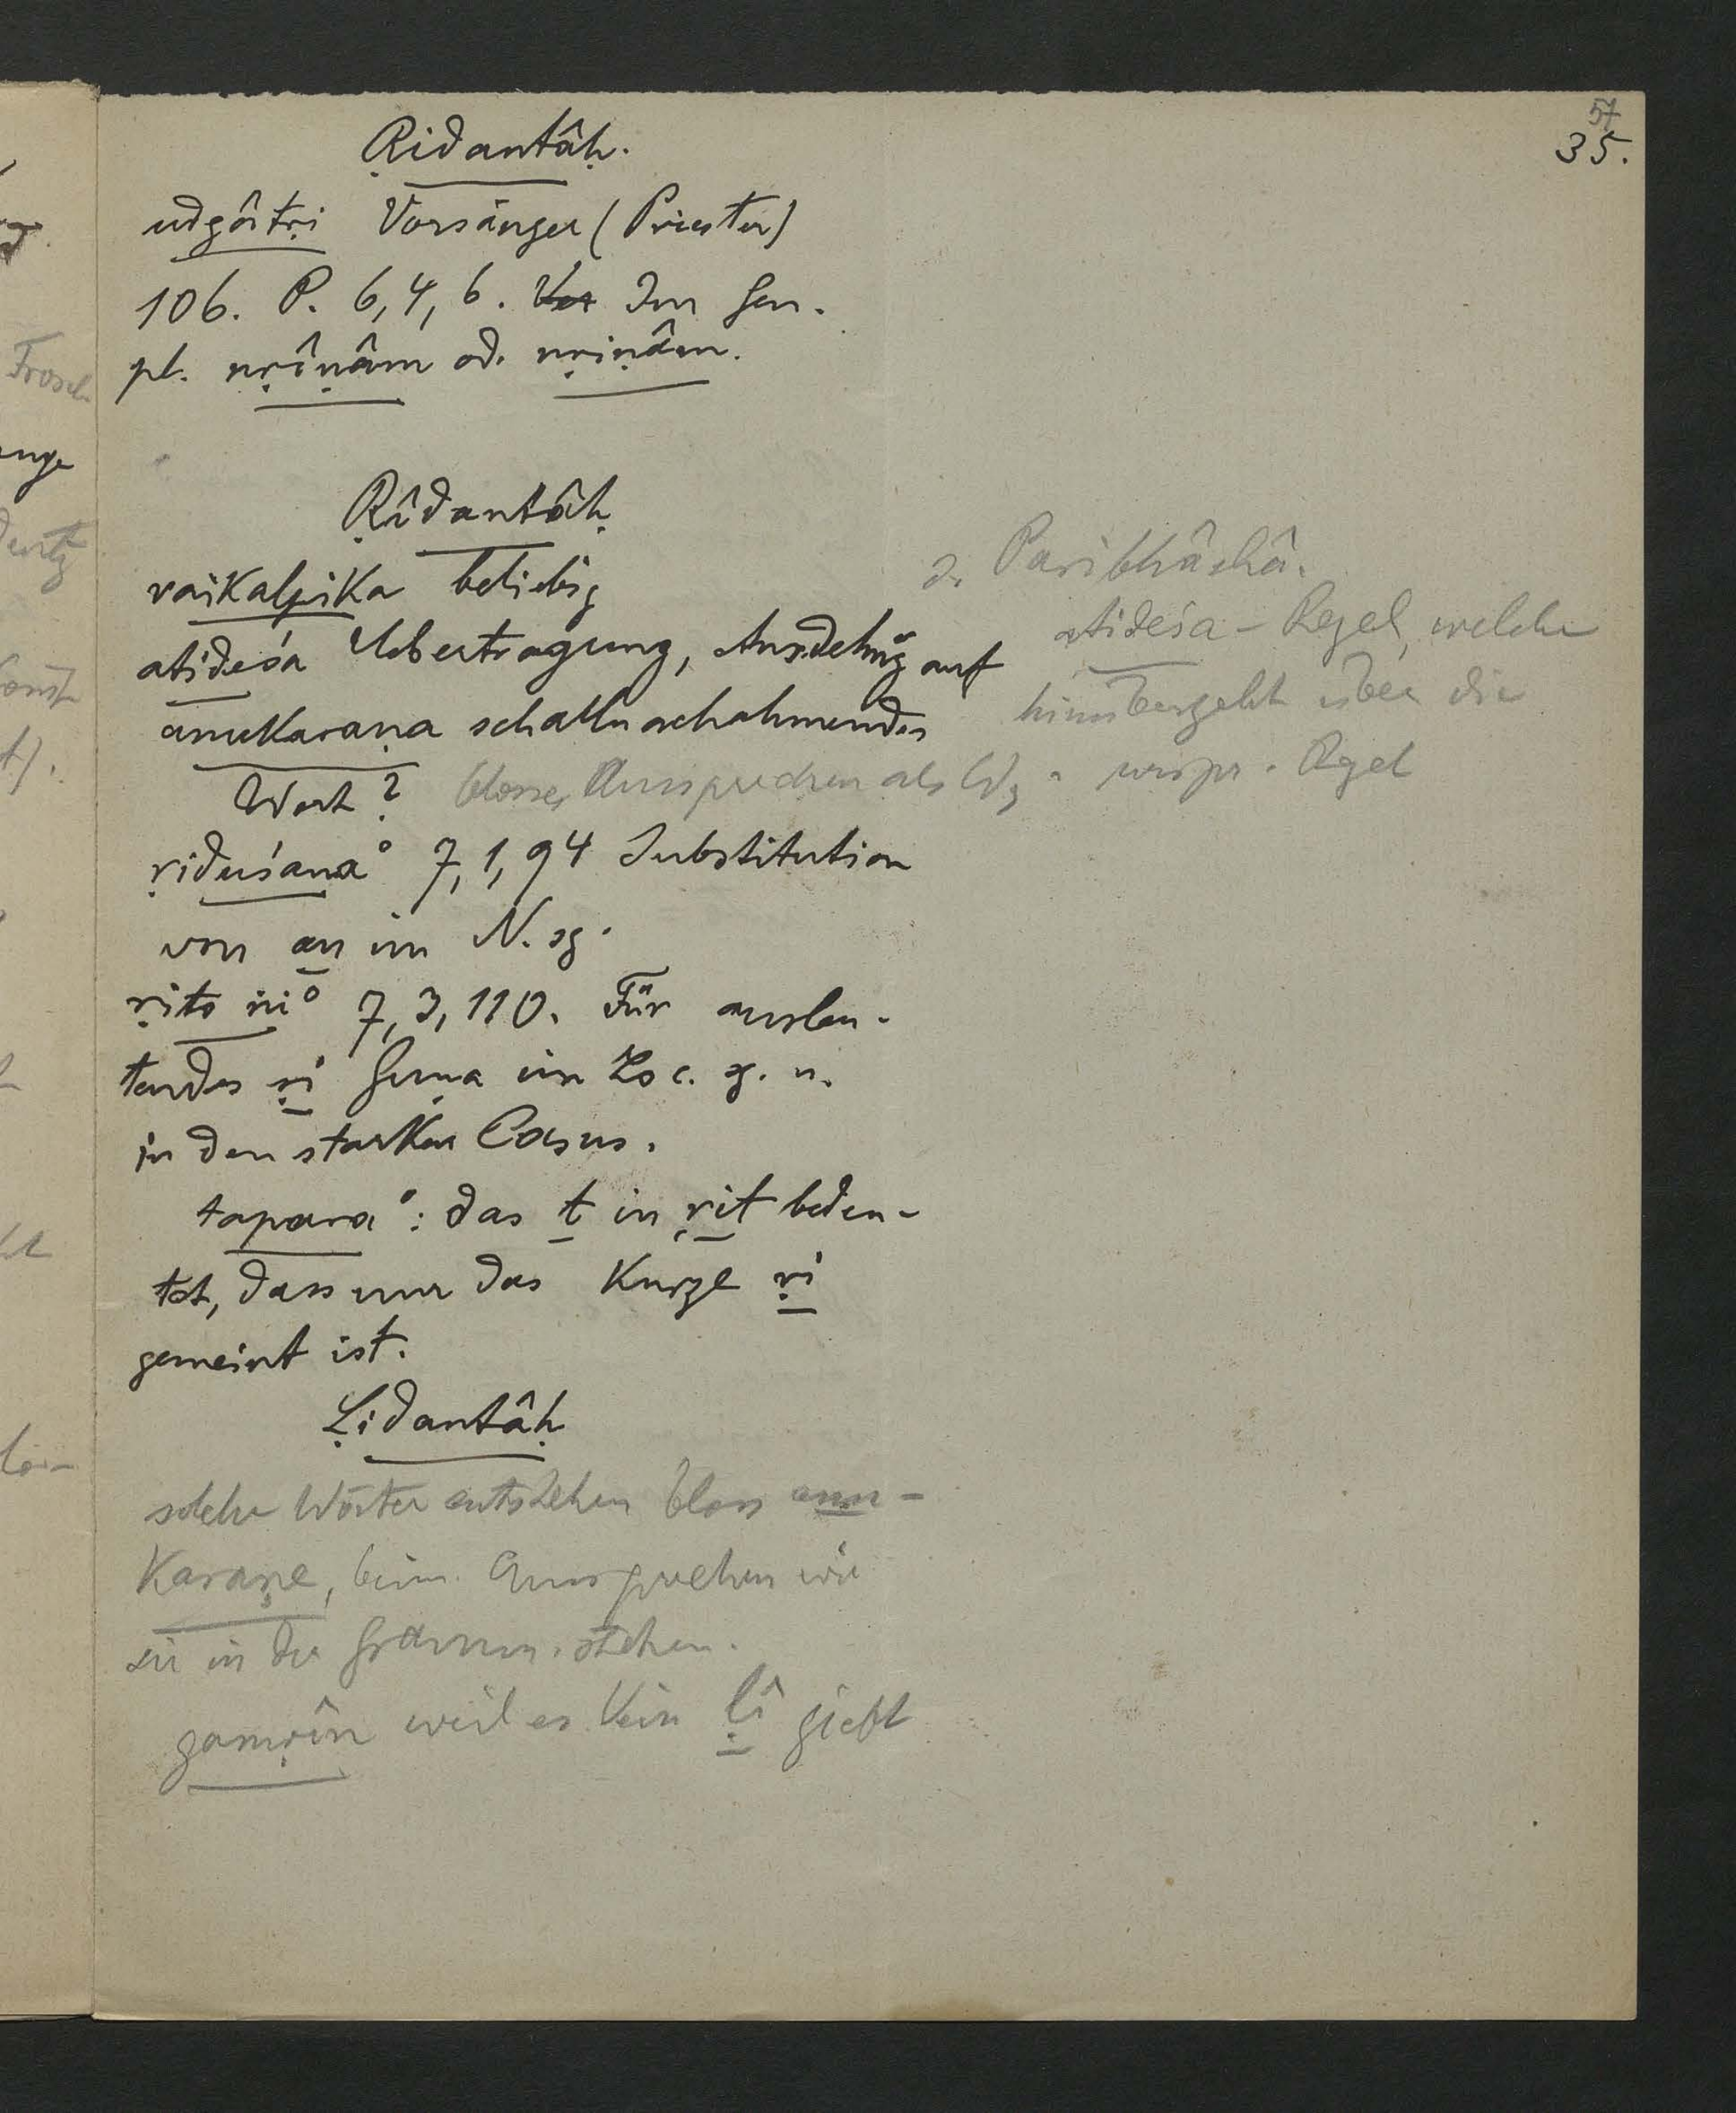 57
35.
Ṛidantâḥ.
udgâtṛi Vorsänger (Priester)
106. P. 6,4,6. Im Gen.
pl. nṛîṇâm od. nṛiṇâm.
Ṛîdantâḥ
vaikalpika beliebig
atideśa Uebertragung, Ausdehng auf
anukaraṇa schallnachahmendes
Wort? blosses Aussprechen als
s. Paribhâshâ.
atideśa - Regel, welche
hinübergeht über die
urspr. Regel
ṛiduśana° 7,1,94 Substitution
von an im N. sg.
ṛito ṅi° 7,3,110. Für auslau-
tendes ṛi Guṇa im Loc. sg. u.
in den starken Casus.
tapara°: das t in ṛit bedeu-
tet, dass nur das kurze ṛi
gemeint ist.
Ḷidantâḥ
solche Wörter entstehen bloss anu-
karaṇe, beim Aussprechen wie
sie in der Gramm. stehen.
gamṛîn weil es kein ḷî giebt
Frosch